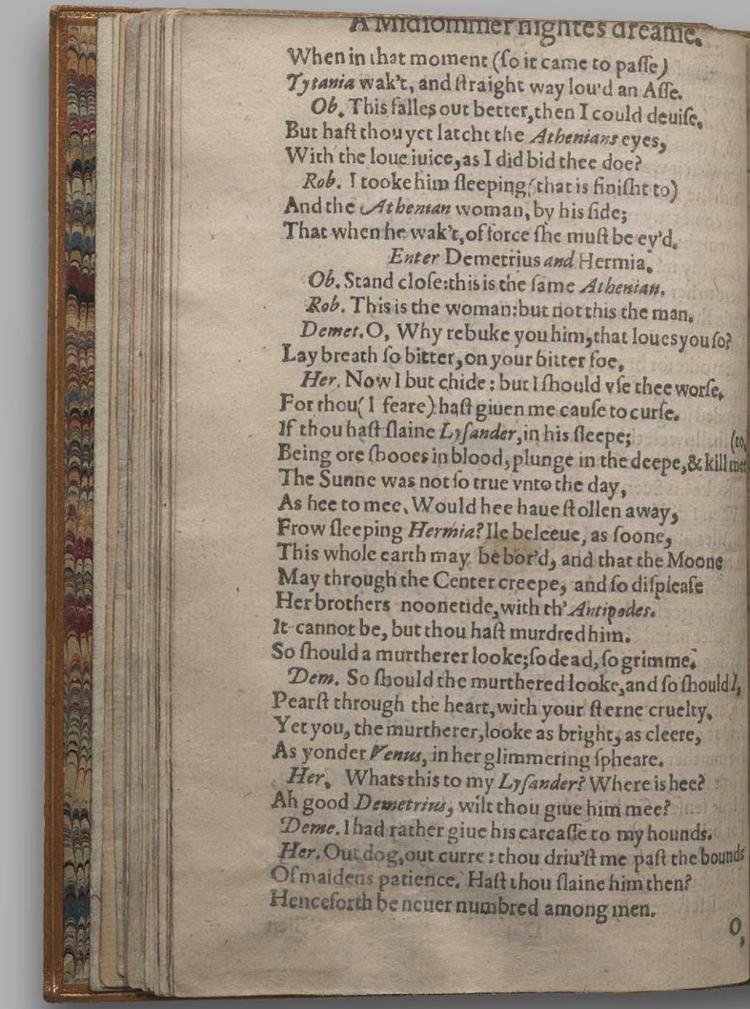 A Midsommer nightes dreame.
When in that moment (ſo it came to paſſe)
Tytania wak't, and ſtraight way lou'd an Aſſe.
Ob. This falles out better, then I could deuiſe.
But haſt thou yet latcht the Athenians eyes,
With the loue iuice, as I did bid thee doe?
Rob. I tooke him ſleeping (that is finiſht to)
And the Athenian woman, by his ſide;
That when he wak't, of force ſhe muſt be ey'd.
Enter Demetrius and Hermia.
Ob. Stand cloſe: this is the ſame Athenian.
Rob. This is the woman: but not this the man.
Demet. O, Why rebuke you him, that loues you ſo?
Lay breath ſo bitter, on your bitter foe.
Her. Now I but chide: but I ſhould vſe thee worſe.
For thou (I feare) haſt giuen me cauſe to curſe.
If thou haſt ſlaine Lyſander, in his ſleepe;
(to,
Being ore ſhooes in blood, plunge in the deepe, & kill mee
The Sunne was not ſo true vnto the day,
As hee to mee. Would hee haue ſtollen away,
Frow ſleeping Hermia? Ile beleeue, as ſoone,
This whole earth may be bor'd, and that the Moone
May through the Center creepe, and ſo diſpleaſe
Her brothers noonetide, with th' Antipodes.
It cannot be, but thou haſt murdred him.
So ſhould a murtherer looke; ſo dead, ſo grimme.
Dem. So ſhould the murthered looke, and ſo ſhould I,
Pearſt through the heart, with your ſterne cruelty.
Yet you, the murtherer, looke as bright, as cleere,
As yonder Venus, in her glimmering ſpheare.
Her. Whats this to my Lyſander? Where is hee?
Ah good Demetrius, wilt thou giue him mee?
Deme. I had rather giue his carcaſſe to my hounds.
Her. Out dog, out curre: thou driu'ſt me paſt the bounds
Of maidens patience. Haſt thou ſlaine him then?
Henceforth be neuer numbred among men.
O,